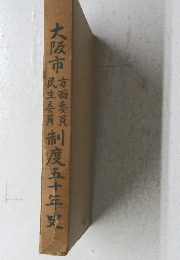 大阪市
方面委員
民生委員
制度五十年史